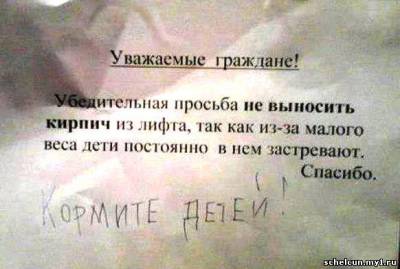 Уважаемые граждане!
Убедительная просьба не выносить
кирпич из лифта, так как из-за малого
веса дети постоянно в нем застревают.
Спасибо.
КОРМИТЕ ДЕТЕЙ!
schelcun.my1.ru